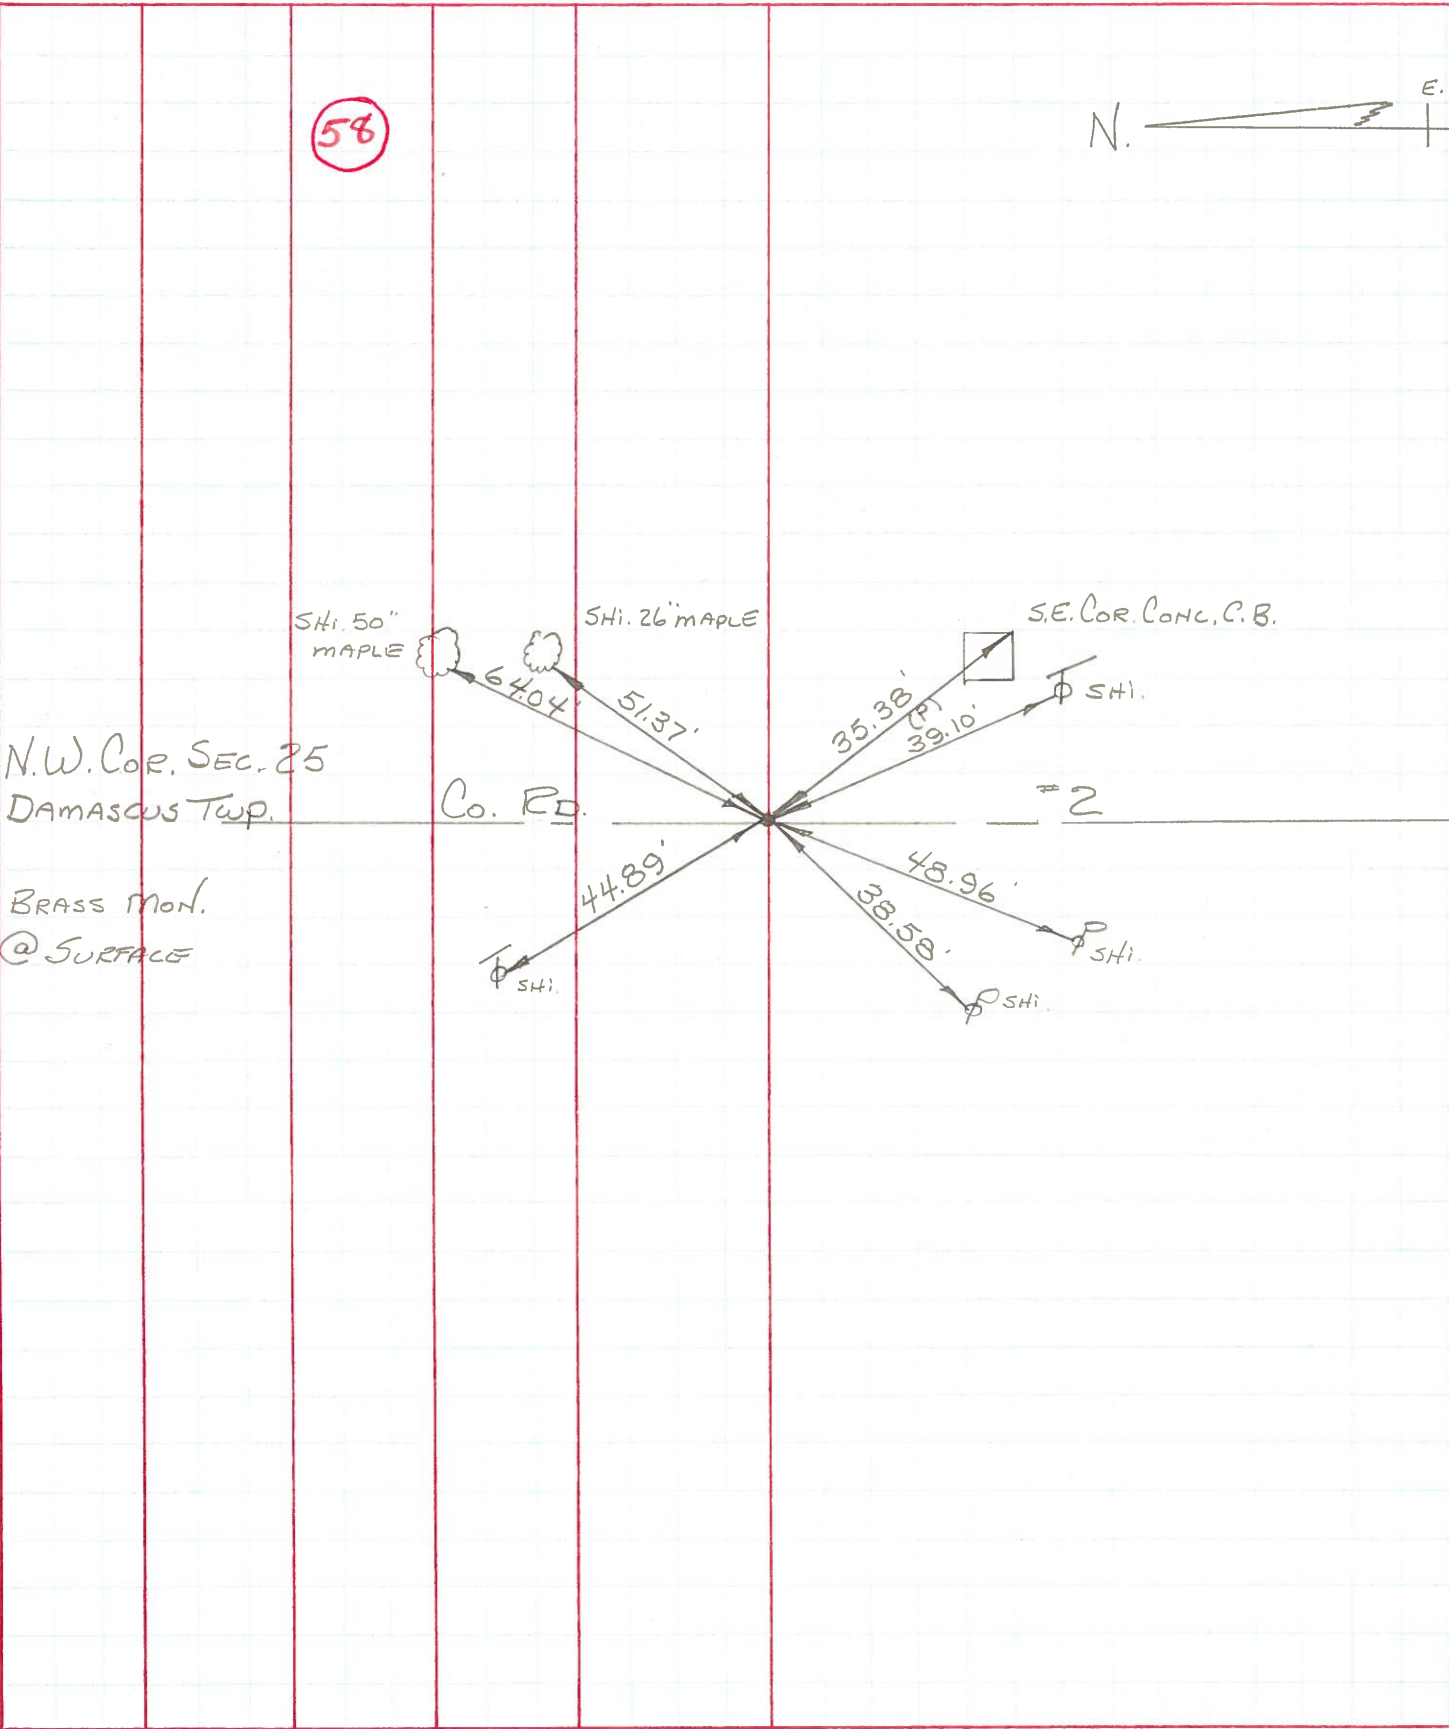 58
N.
E.
SHi. 50"
MAPLE
SHi. 26" MAPLE
S.E. COR. CONC. C.B.
64.04'
51.37'
35.38'
(P)
39.10'
SHi.
N.W. COR. SEC. 25
DAMASCUS TWP.
CO. RD.
#2
BRASS MON.
@ SURFACE
44.89'
48.96'
38.58'
SHi.
SHi.
SHi.